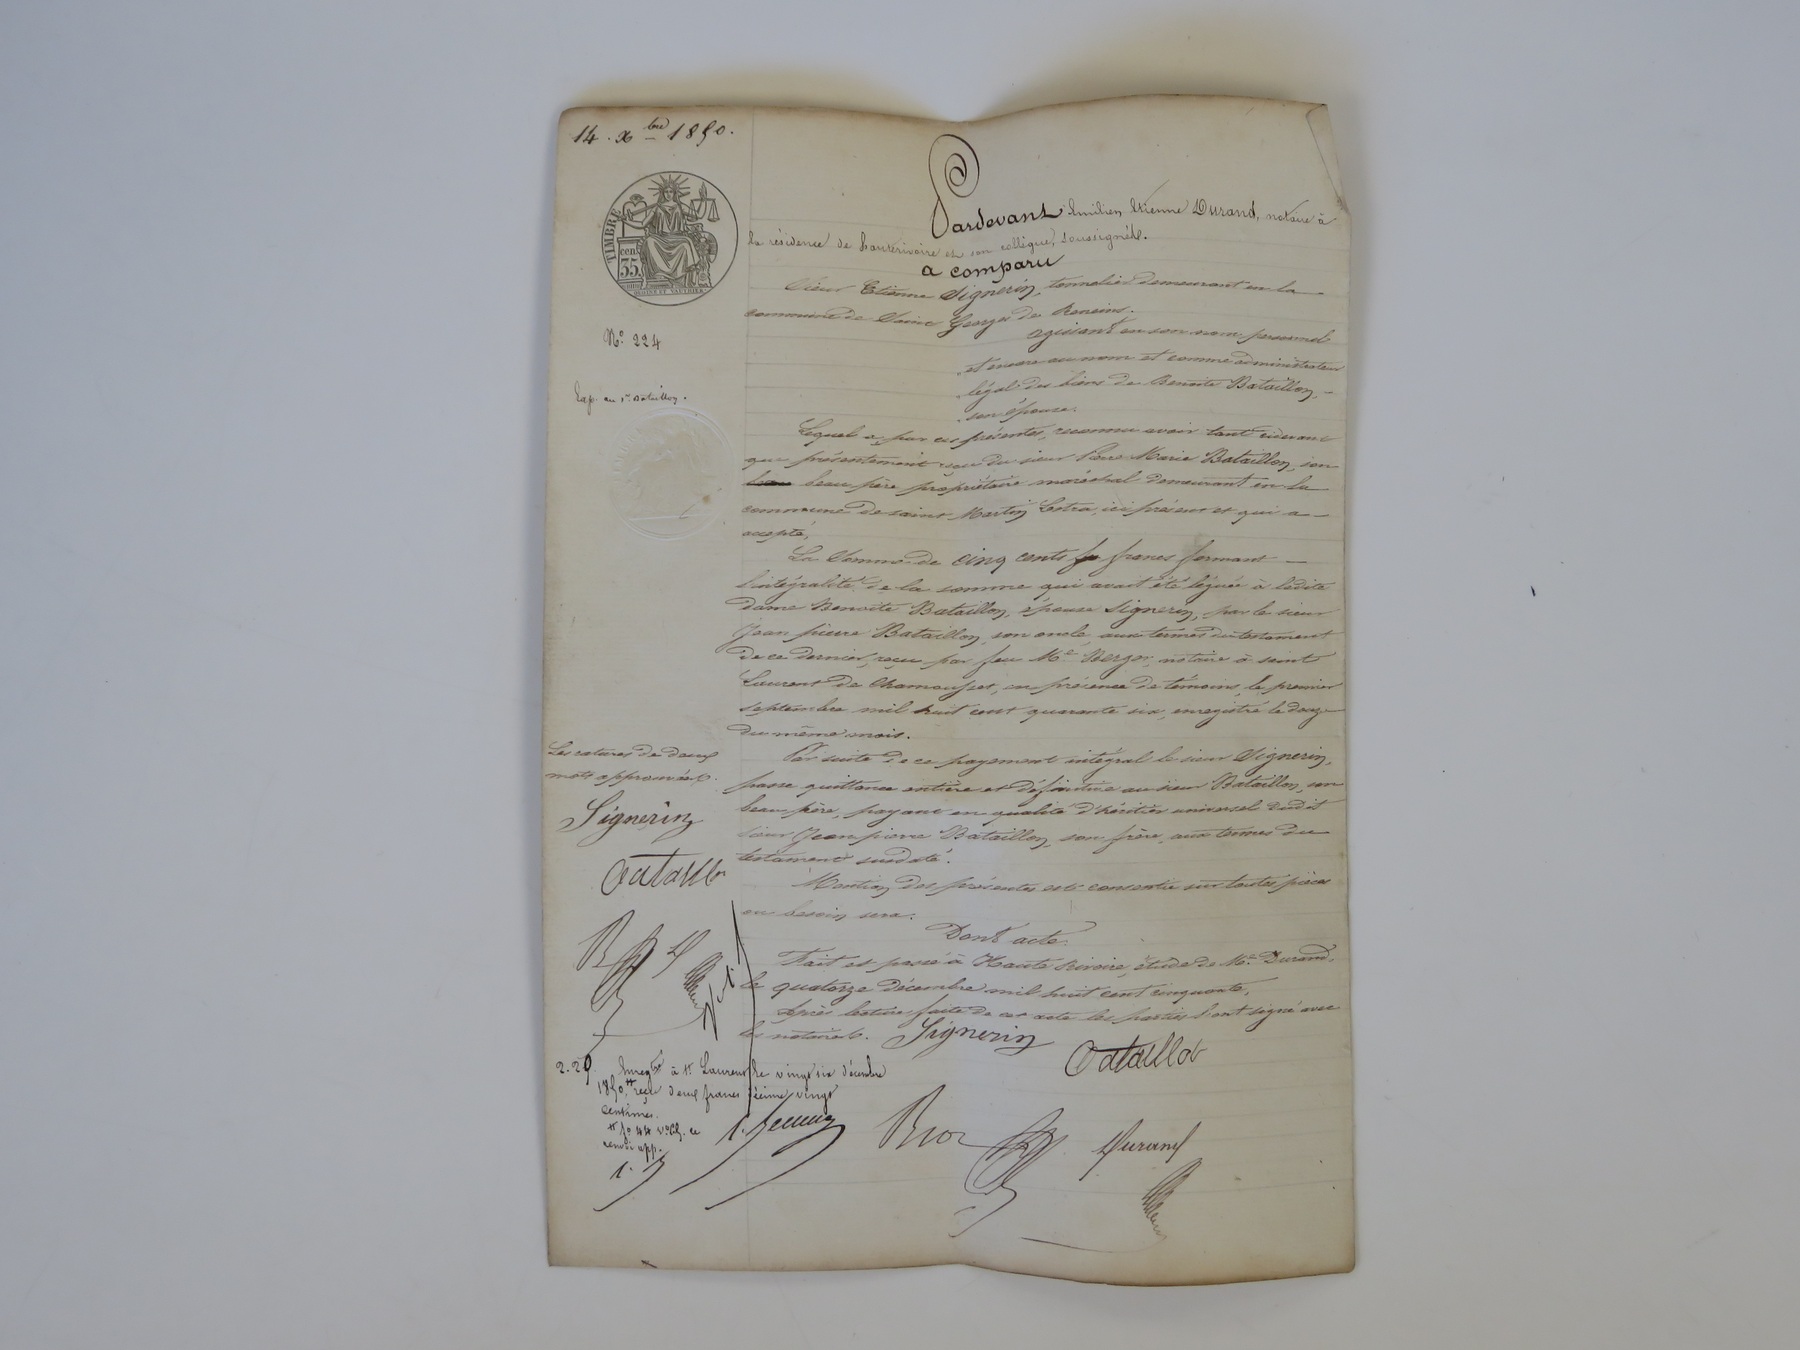 14. Xbre 1850.
TIMBRE
35 cen.
No. 224
Exp. au Sr. Bataillon.
Pardevant Emilien Etienne Durand, notaire à
la résidence de hauterivoire et son collègue, soussignés.
a comparu
Sieur Etienne Signerin, tonnelier demeurant en la
commune de Saint Georges de Reneins.
agissant en son nom personnel
et encore au nom et comme administrateur
légal des biens de Benoite Bataillon,
son épouse.
Lequel a par ces présentes, reconnu avoir tant
que présentement reçu du sieur Marie Bataillon, son
beau père propriétaire maréchal demeurant en la
commune de saint Martin Lestra, ici présent et qui a
accepté,
La Somme de cinq cents francs formant
l'intégralité de la somme qui avait été léguée à ladite
dame Benoite Bataillon, épouse Signerin, par le sieur
Jean pierre Bataillon, son oncle, aux termes du testament
de ce dernier, reçu par feu Me. Berger, notaire à saint
Laurent de Chamousset, en présence de témoins, le premier
septembre mil huit cent quarante six, enregistré le douze
du même mois.
Par suite de ce payement intégral le sieur Signerin,
passe quittance entière et définitive au sieur Bataillon, son
beau père, payant en qualité d'héritier universel dudit
sieur Jean pierre Bataillon, son frère, aux termes du
testament susdaté.
Mention des présentes est consentie sur toutes pièces
où besoin sera.
Dont acte.
Fait et passé à Haute Rivoire, étude de Me. Durand,
le quatorze décembre mil huit cent cinquante,
Après lecture faite de cet acte les parties l'ont signé avec
les notaires. Signerin
Bataillon
Les ratures de deux
mots approuvées.
Signerin
Bataillon
2.20 Enregtré à St. Laurent le vingt six décembre
1850, reçu deux francs décime vingt
centimes.
fo 44 Vo C
renvoi app.
Durand